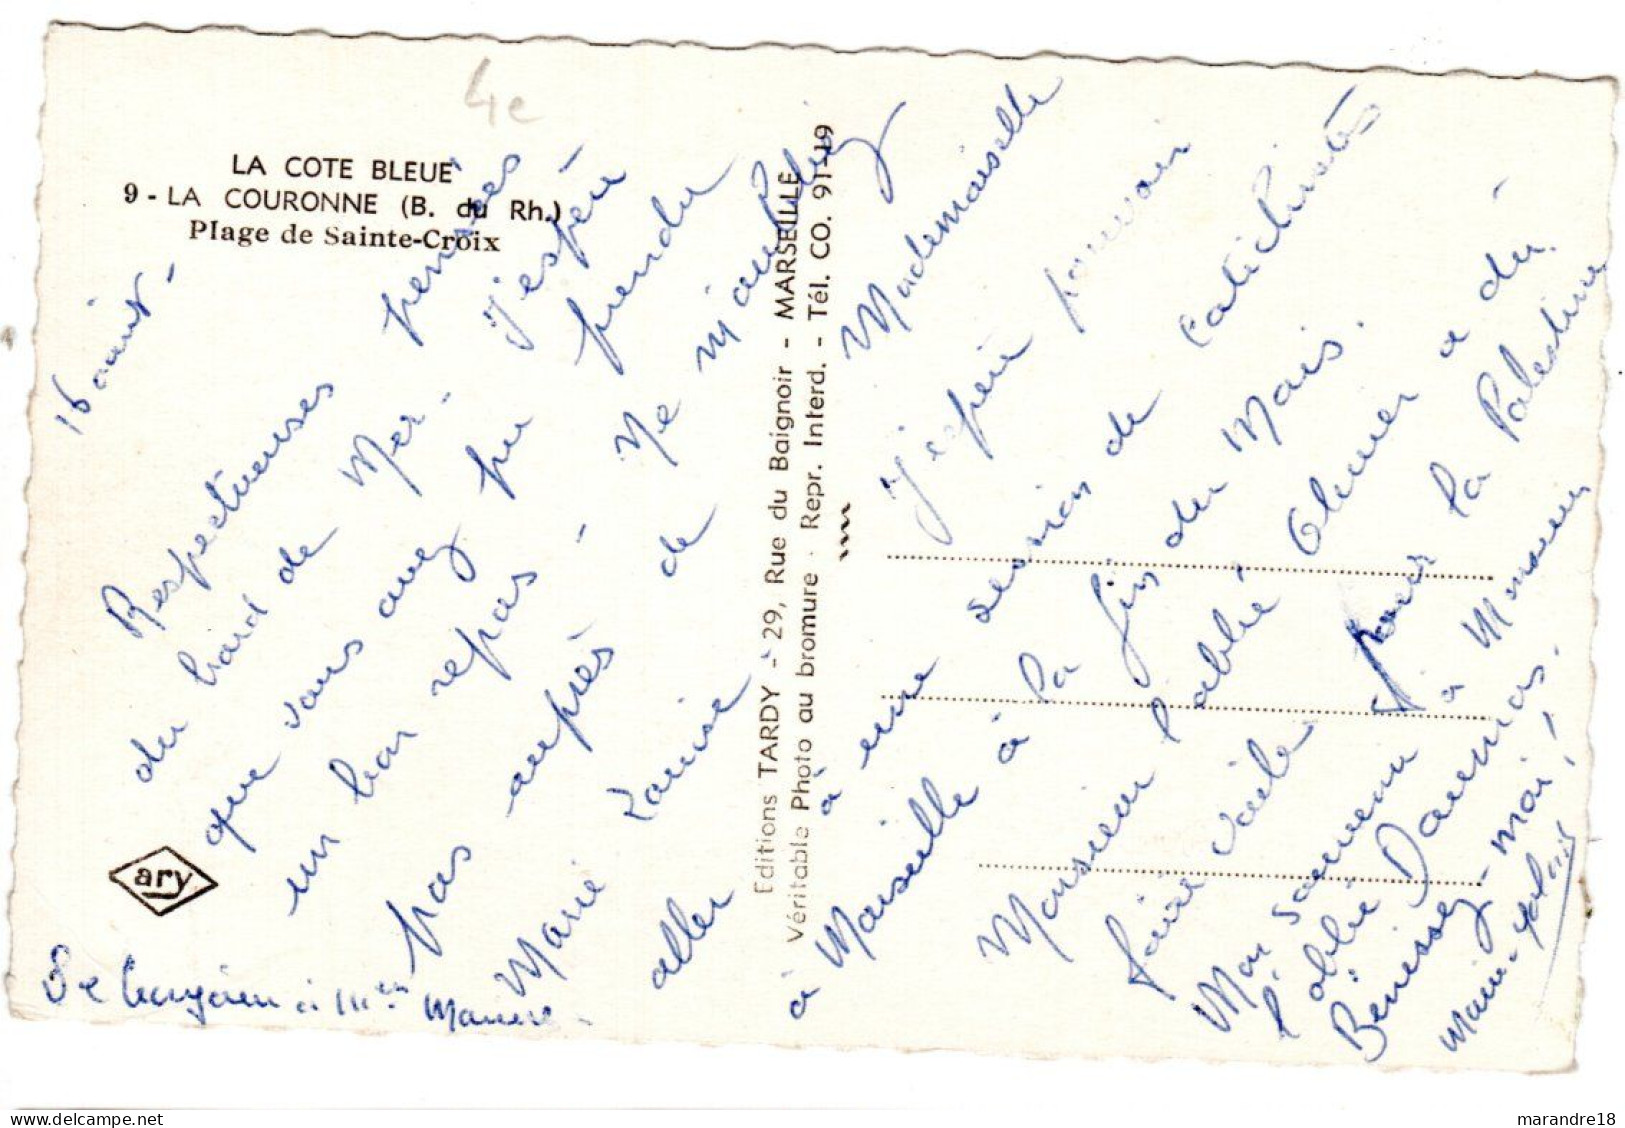 4e
LA COTE BLEUE
9 - LA COURONNE (B. du Rh.)
Plage de Sainte-Croix
16 août -
Respectueuses pensées
du bord de Mer. J'espère
que vous avez pu prendre
un bon repos - Ne m'oubliez
pas auprès de Mademoiselle
Marie Louise J'espère pouvoir
aller à une session de catéchistes
à Marseille à la fin du Mois.
Monsieur l'abbé Olivier a dû
faire voile pour la Palestine
Mon souvenir à Monsieur
l'abbé Daumas.
Bénissez-moi!
ary
Editions TARDY - 29, Rue du Baignoir - MARSEILLE
Véritable Photo au bromure - Repr. Interd. - Tél. CO. 91-19
delcampe.net
marandre18